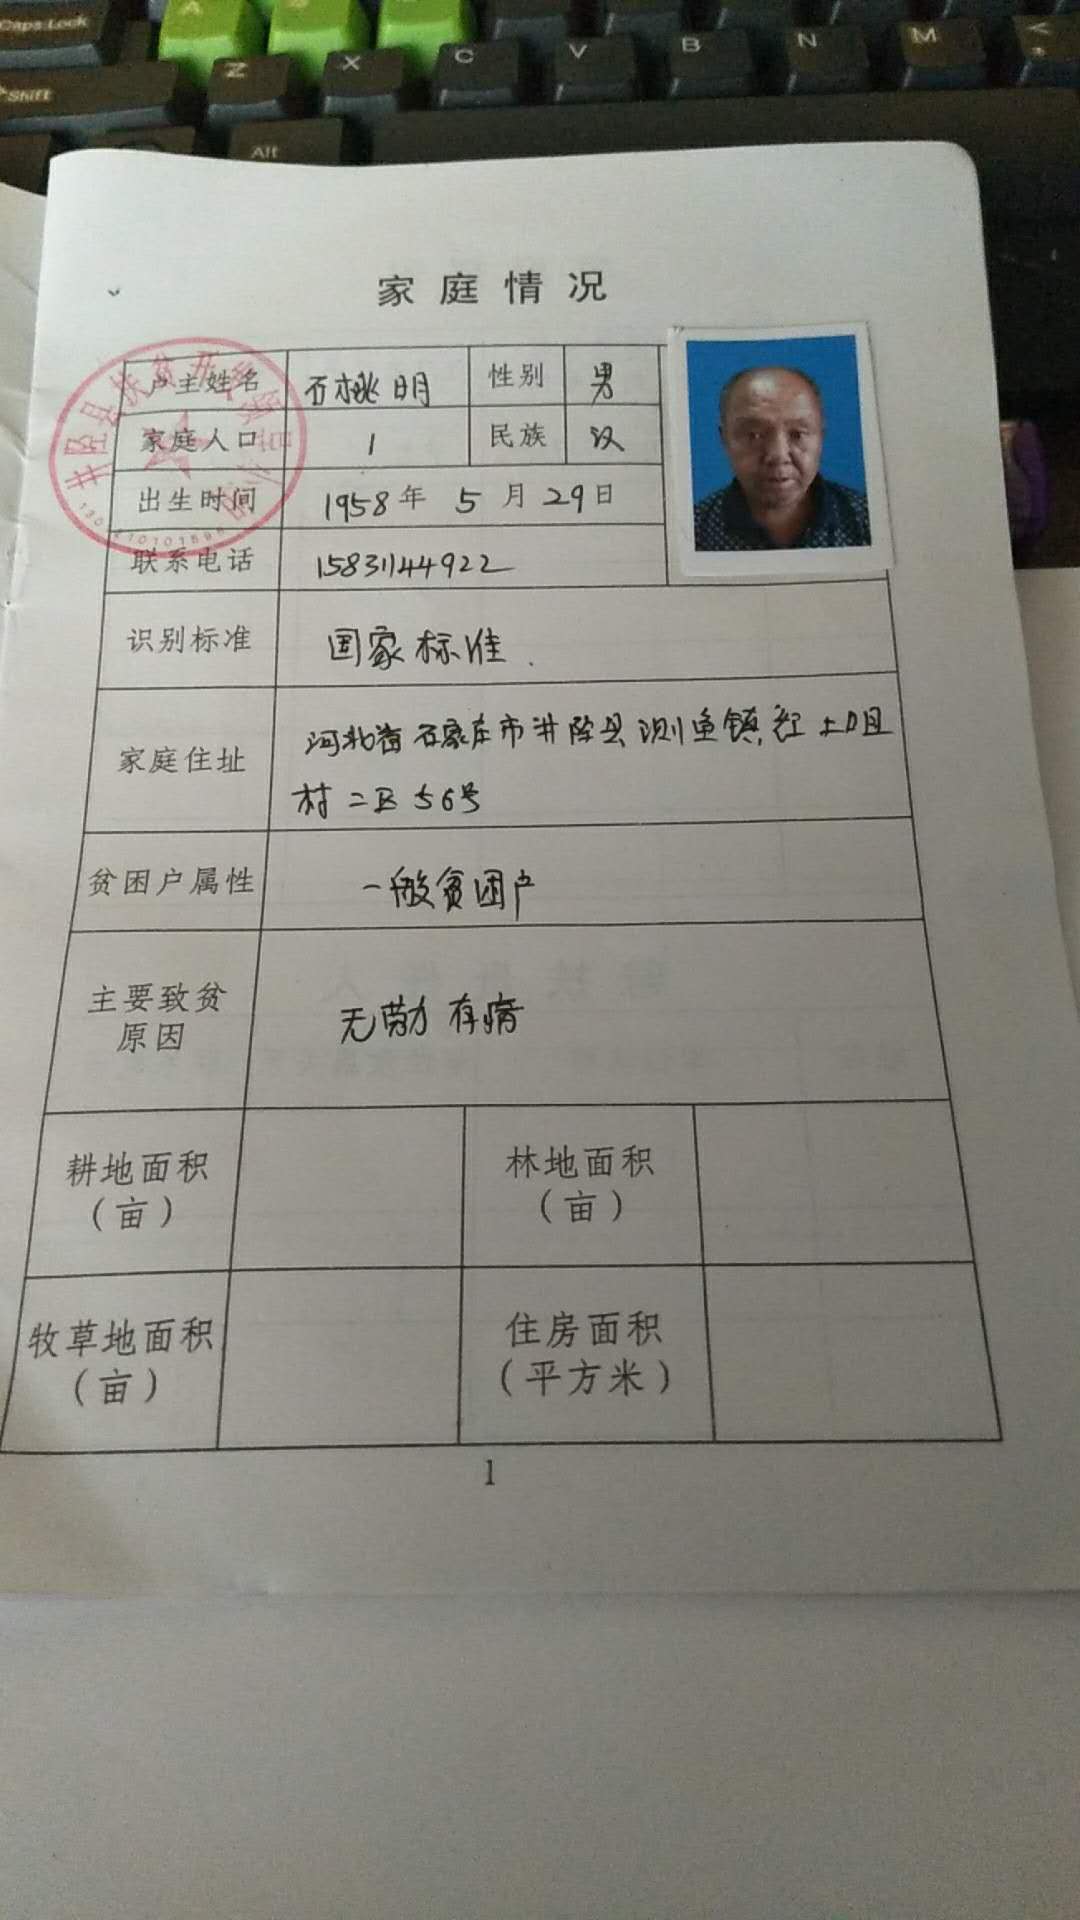 Caps Lock
A
Z
X
C
V
B
N
M
<
Shift
Alt
家庭情况
户主姓名 石桃明 性别 男
家庭人口 1 民族 汉
出生时间 1958年 5月29日
联系电话 15831144922
识别标准 国家标准.
家庭住址 河北省石家庄市井陉县测鱼镇红土咀
村二区56号
贫困户属性 一般贫困户
主要致贫
原因
无劳力 存病
耕地面积
(亩)
林地面积
(亩)
牧草地面积
(亩)
住房面积
(平方米)
1
井陉县扶贫开发